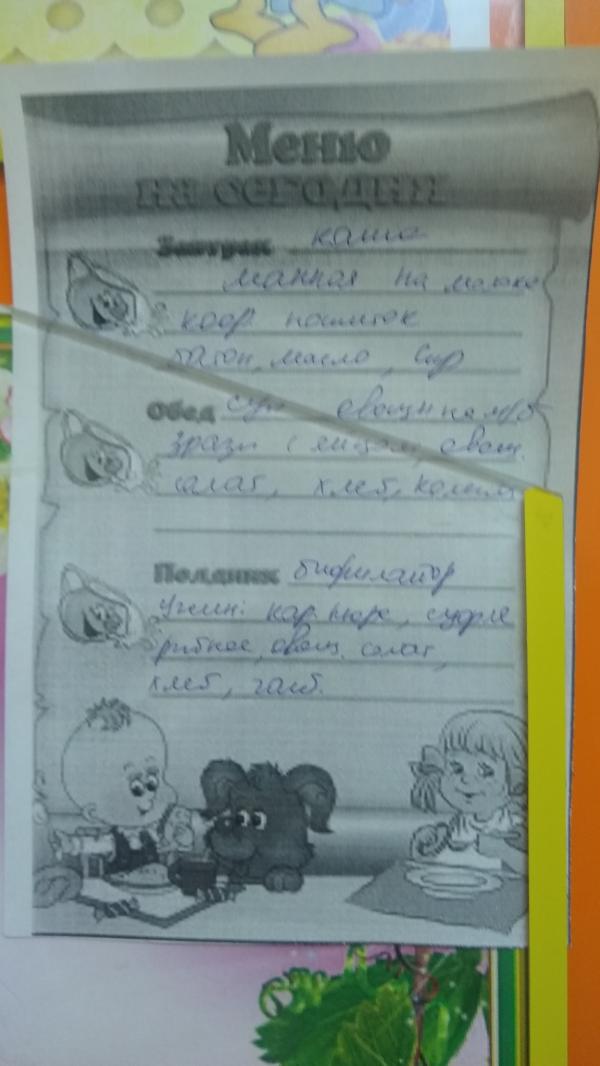 Меню
на сегодня
Завтрак каша
манная на молоке
коф. напиток
батон, масло, сыр
Обед суп овощн на м/б
зразы с яйцом, овощ.
салат, хлеб, кисель
Полдник бифилайф
Ужин: кар. пюре, суфле
рыбное, овощ. салат,
хлеб,